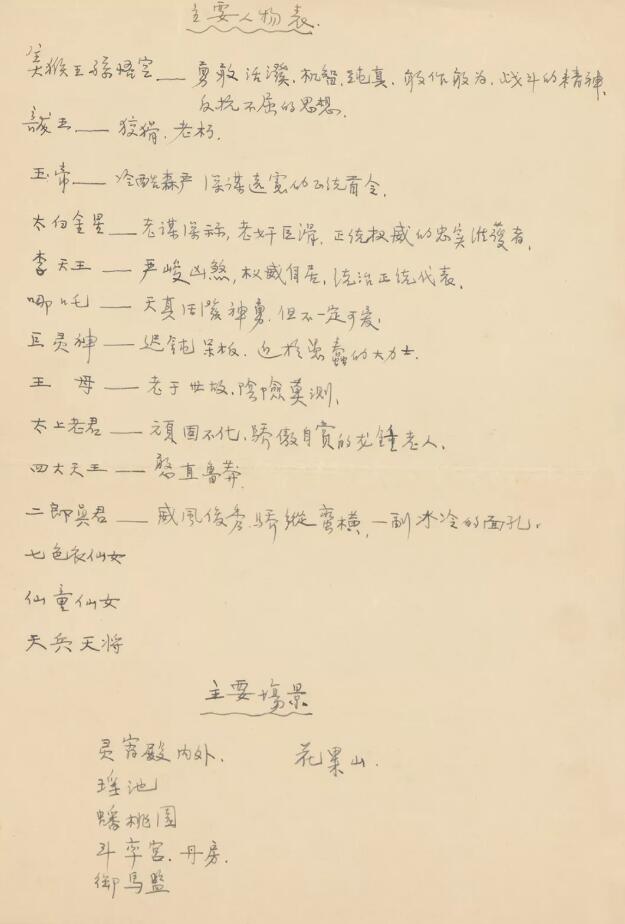 主要人物表.
美猴王孫悟空——勇敢活潑、机智、純真、敢作敢为、战斗的精神、
反抗不屈的思想.
龍王——狡猾、老朽.
玉帝——冷酷森严 深谋远慮的正统首令.
太白金星——老謀深祘, 老奸巨滑、正统权威的忠实
李天王——严峻凶煞, 权威自居, 统治正统代表.
哪吒——天真活潑神勇, 但不一定可爱.
巨灵神——迟鈍呆板、近於愚蠢的大力士.
王 母——老于世故、陰險莫測.
太上老君——頑固不化、驕傲自赏的龙鍾老人.
四大天王——憨直魯莽.
二郎真君——威風俊秀、驕縱蛮横, 一副冰冷的面孔。
七色衣仙女
仙童仙女
天兵天将
主要場景
灵宵殿内外. 花果山.
瑶池
蟠桃园
斗率宮、丹房.
御馬監